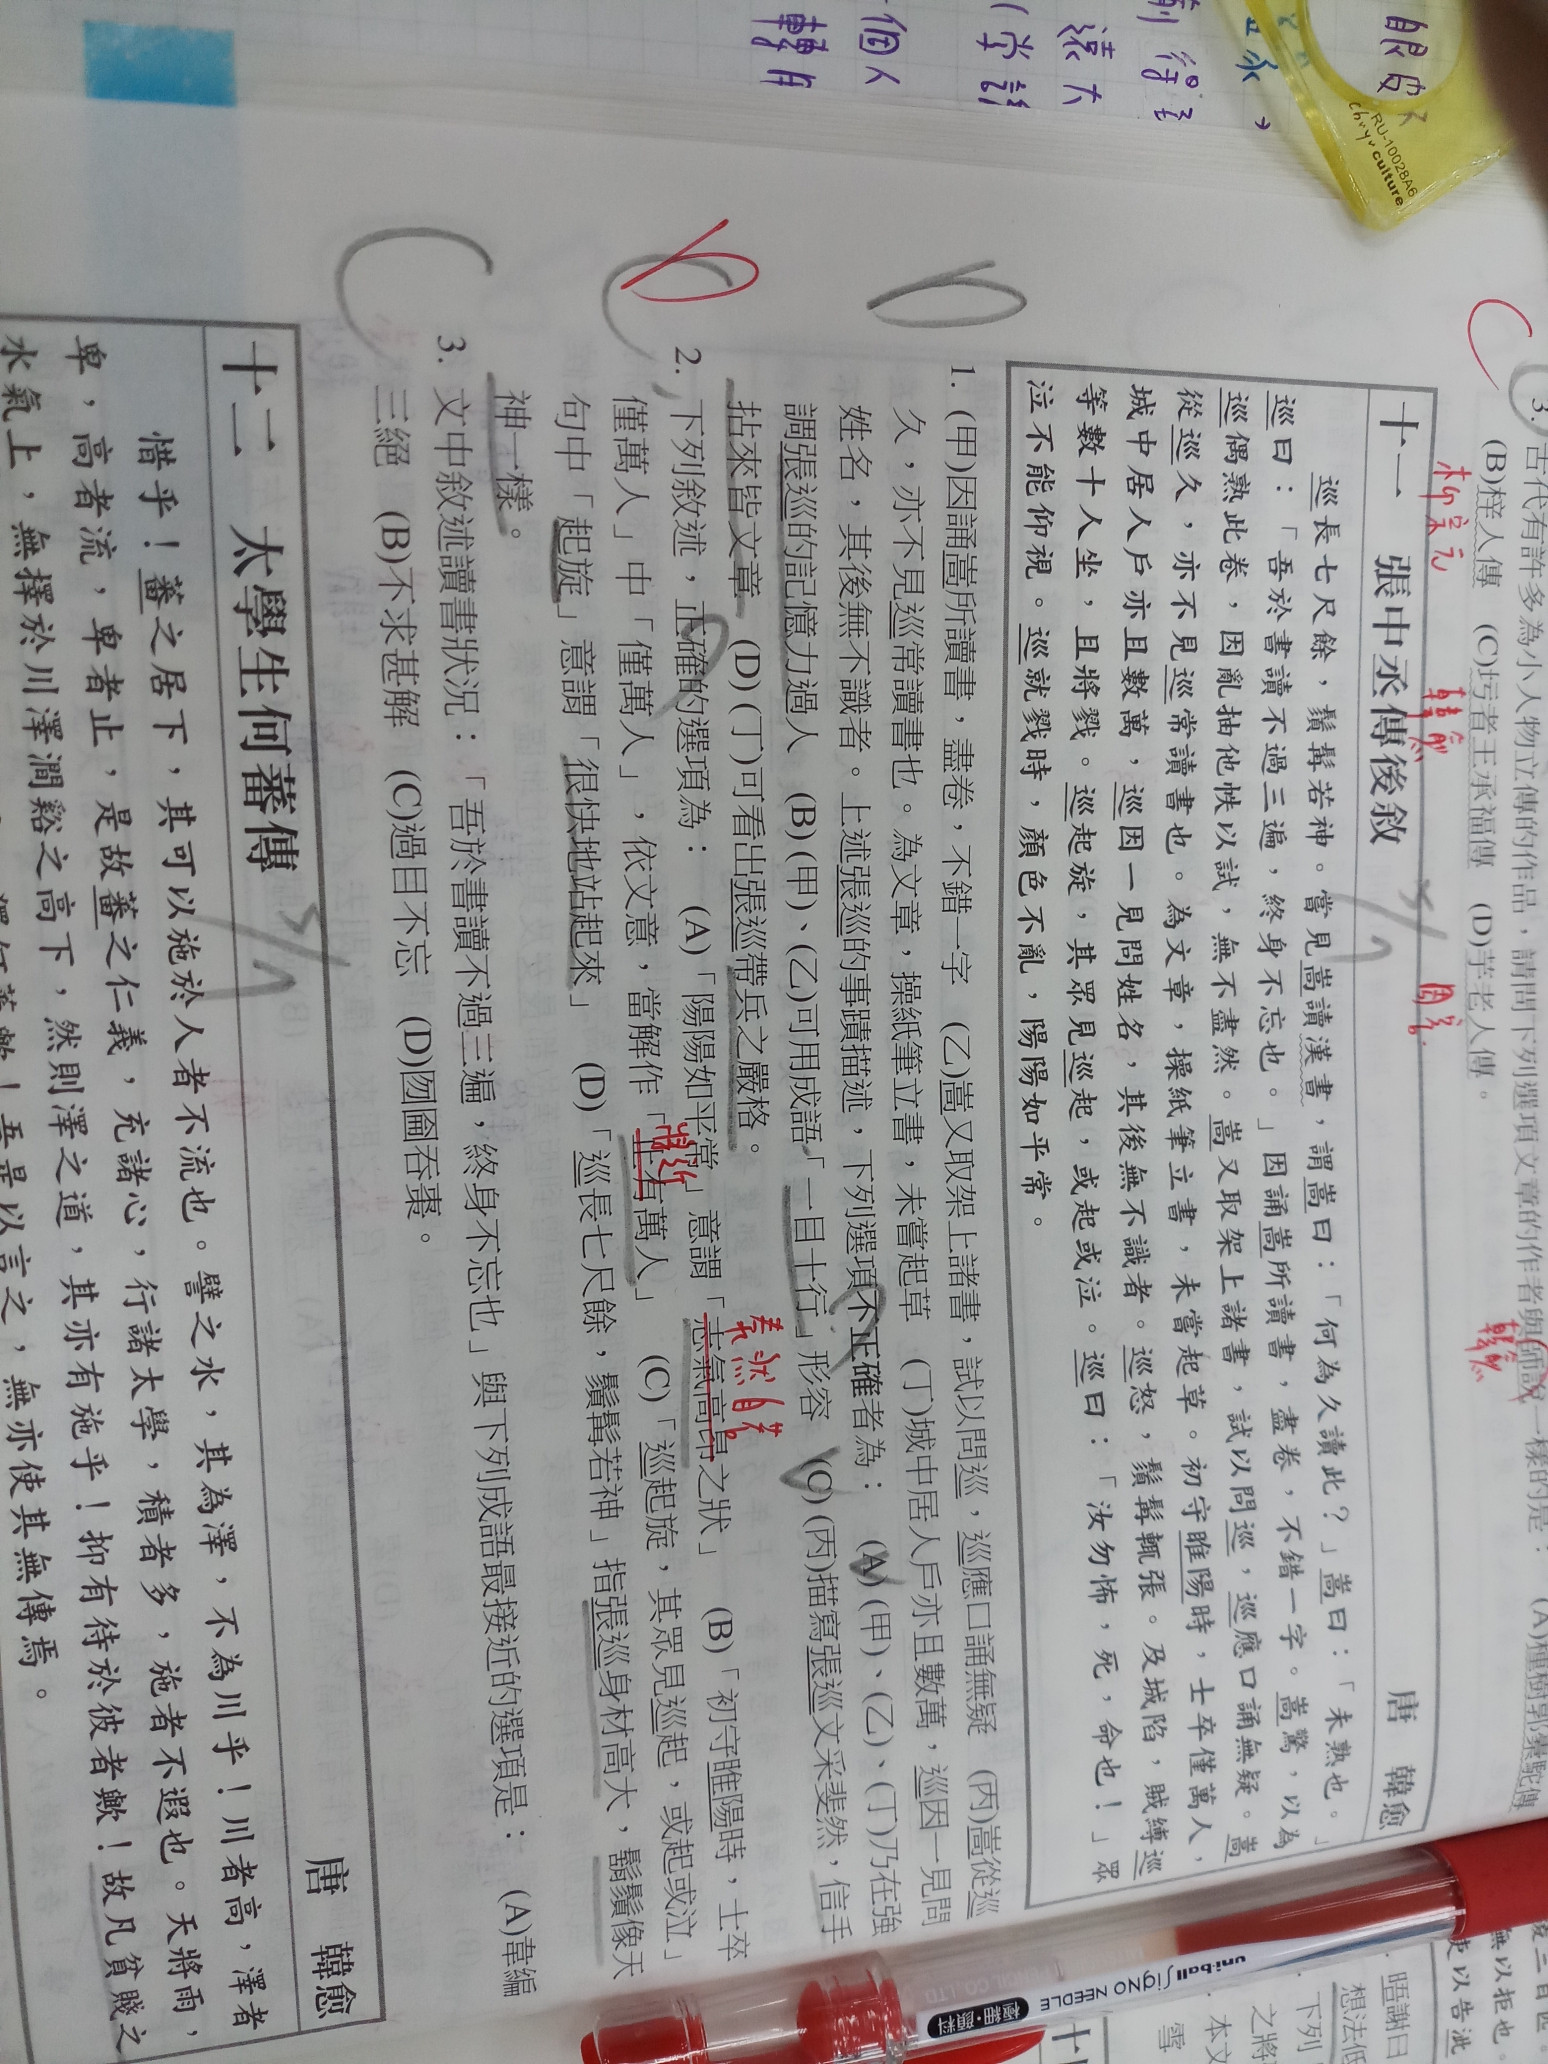 3. 古代有許多為小人物立傳的作品，請問下列選項文章的作者與師說一樣的是： (A)種樹郭橐駝傳
(B)梓人傳 (C)圬者王承福傳 (D)芋老人傳。
柳宗元
韓愈
周容
C
十一 張中丞傳後敘 唐 韓愈
巡長七尺餘，鬚髯若神。嘗見嵩讀漢書，謂嵩曰：「何為久讀此？」嵩曰：「未熟也。」
巡曰：「吾於書讀不過三遍，終身不忘也。」因誦嵩所讀書，盡卷，不錯一字。嵩驚，以為
巡偶熟此卷，因亂抽他帙以試，無不盡然。嵩又取架上諸書，試以問巡，巡應口誦無疑。嵩
從巡久，亦不見巡常讀書也。為文章，操紙筆立書，未嘗起草。初守睢陽時，士卒僅萬人，
城中居人戶亦且數萬，巡因一見問姓名，其後無不識者。巡怒，鬚髯輒張。及城陷，賊縛巡
等數十人坐，且將戮。巡起旋，其眾見巡起，或起或泣。巡曰：「汝勿怖，死，命也！」眾
泣不能仰視。巡就戮時，顏色不亂，陽陽如平常。
D
1. (甲)因誦嵩所讀書，盡卷，不錯一字 (乙)嵩又取架上諸書，試以問巡，巡應口誦無疑 (丙)嵩從巡
久，亦不見巡常讀書也。為文章，操紙筆立書，未嘗起草 (丁)城中居人戶亦且數萬，巡因一見問
姓名，其後無不識者。上述張巡的事蹟描述，下列選項不正確者為： (A)(甲)、(乙)、(丁)乃在強
調張巡的記憶力過人 (B)(甲)、(乙)可用成語「一目十行」形容 (C)(丙)描寫張巡文采斐然，信手
拈來皆文章 (D)(丁)可看出張巡帶兵之嚴格。
D
2. 下列敘述，正確的選項為： (A)「陽陽如平常」意謂「志氣高昂之狀」 (B)「初守睢陽時，士卒
僅萬人」中「僅萬人」，依文意，當解作「上有萬人」 (C)「巡起旋，其眾見巡起，或起或泣」
句中「起旋」意謂「很快地站起來」 (D)「巡長七尺餘，鬚髯若神」指張巡身材高大，鬍鬚像天
神一樣。
將近
泰然自若
C
3. 文中敘述讀書狀況：「吾於書讀不過三遍，終身不忘也」與下列成語最接近的選項是： (A)韋編
三絕 (B)不求甚解 (C)過目不忘 (D)囫圇吞棗。
十二 太學生何蕃傳 唐 韓愈
惜乎！蕃之居下，其可以施於人者不流也。譬之水，其為澤，不為川乎！川者高，澤者
卑，高者流，卑者止，是故蕃之仁義，充諸心，行諸太學，積者多，施者不遐也。天將雨，
水氣上，無擇於川澤澗谿之高下，然則澤之道，其亦有施乎！抑有待於彼者歟！故凡貧賤之
是以言之，無亦使其無傳焉。
RU-10028A6
culture
uni-ball Signo NEEDLE
極細・顏料